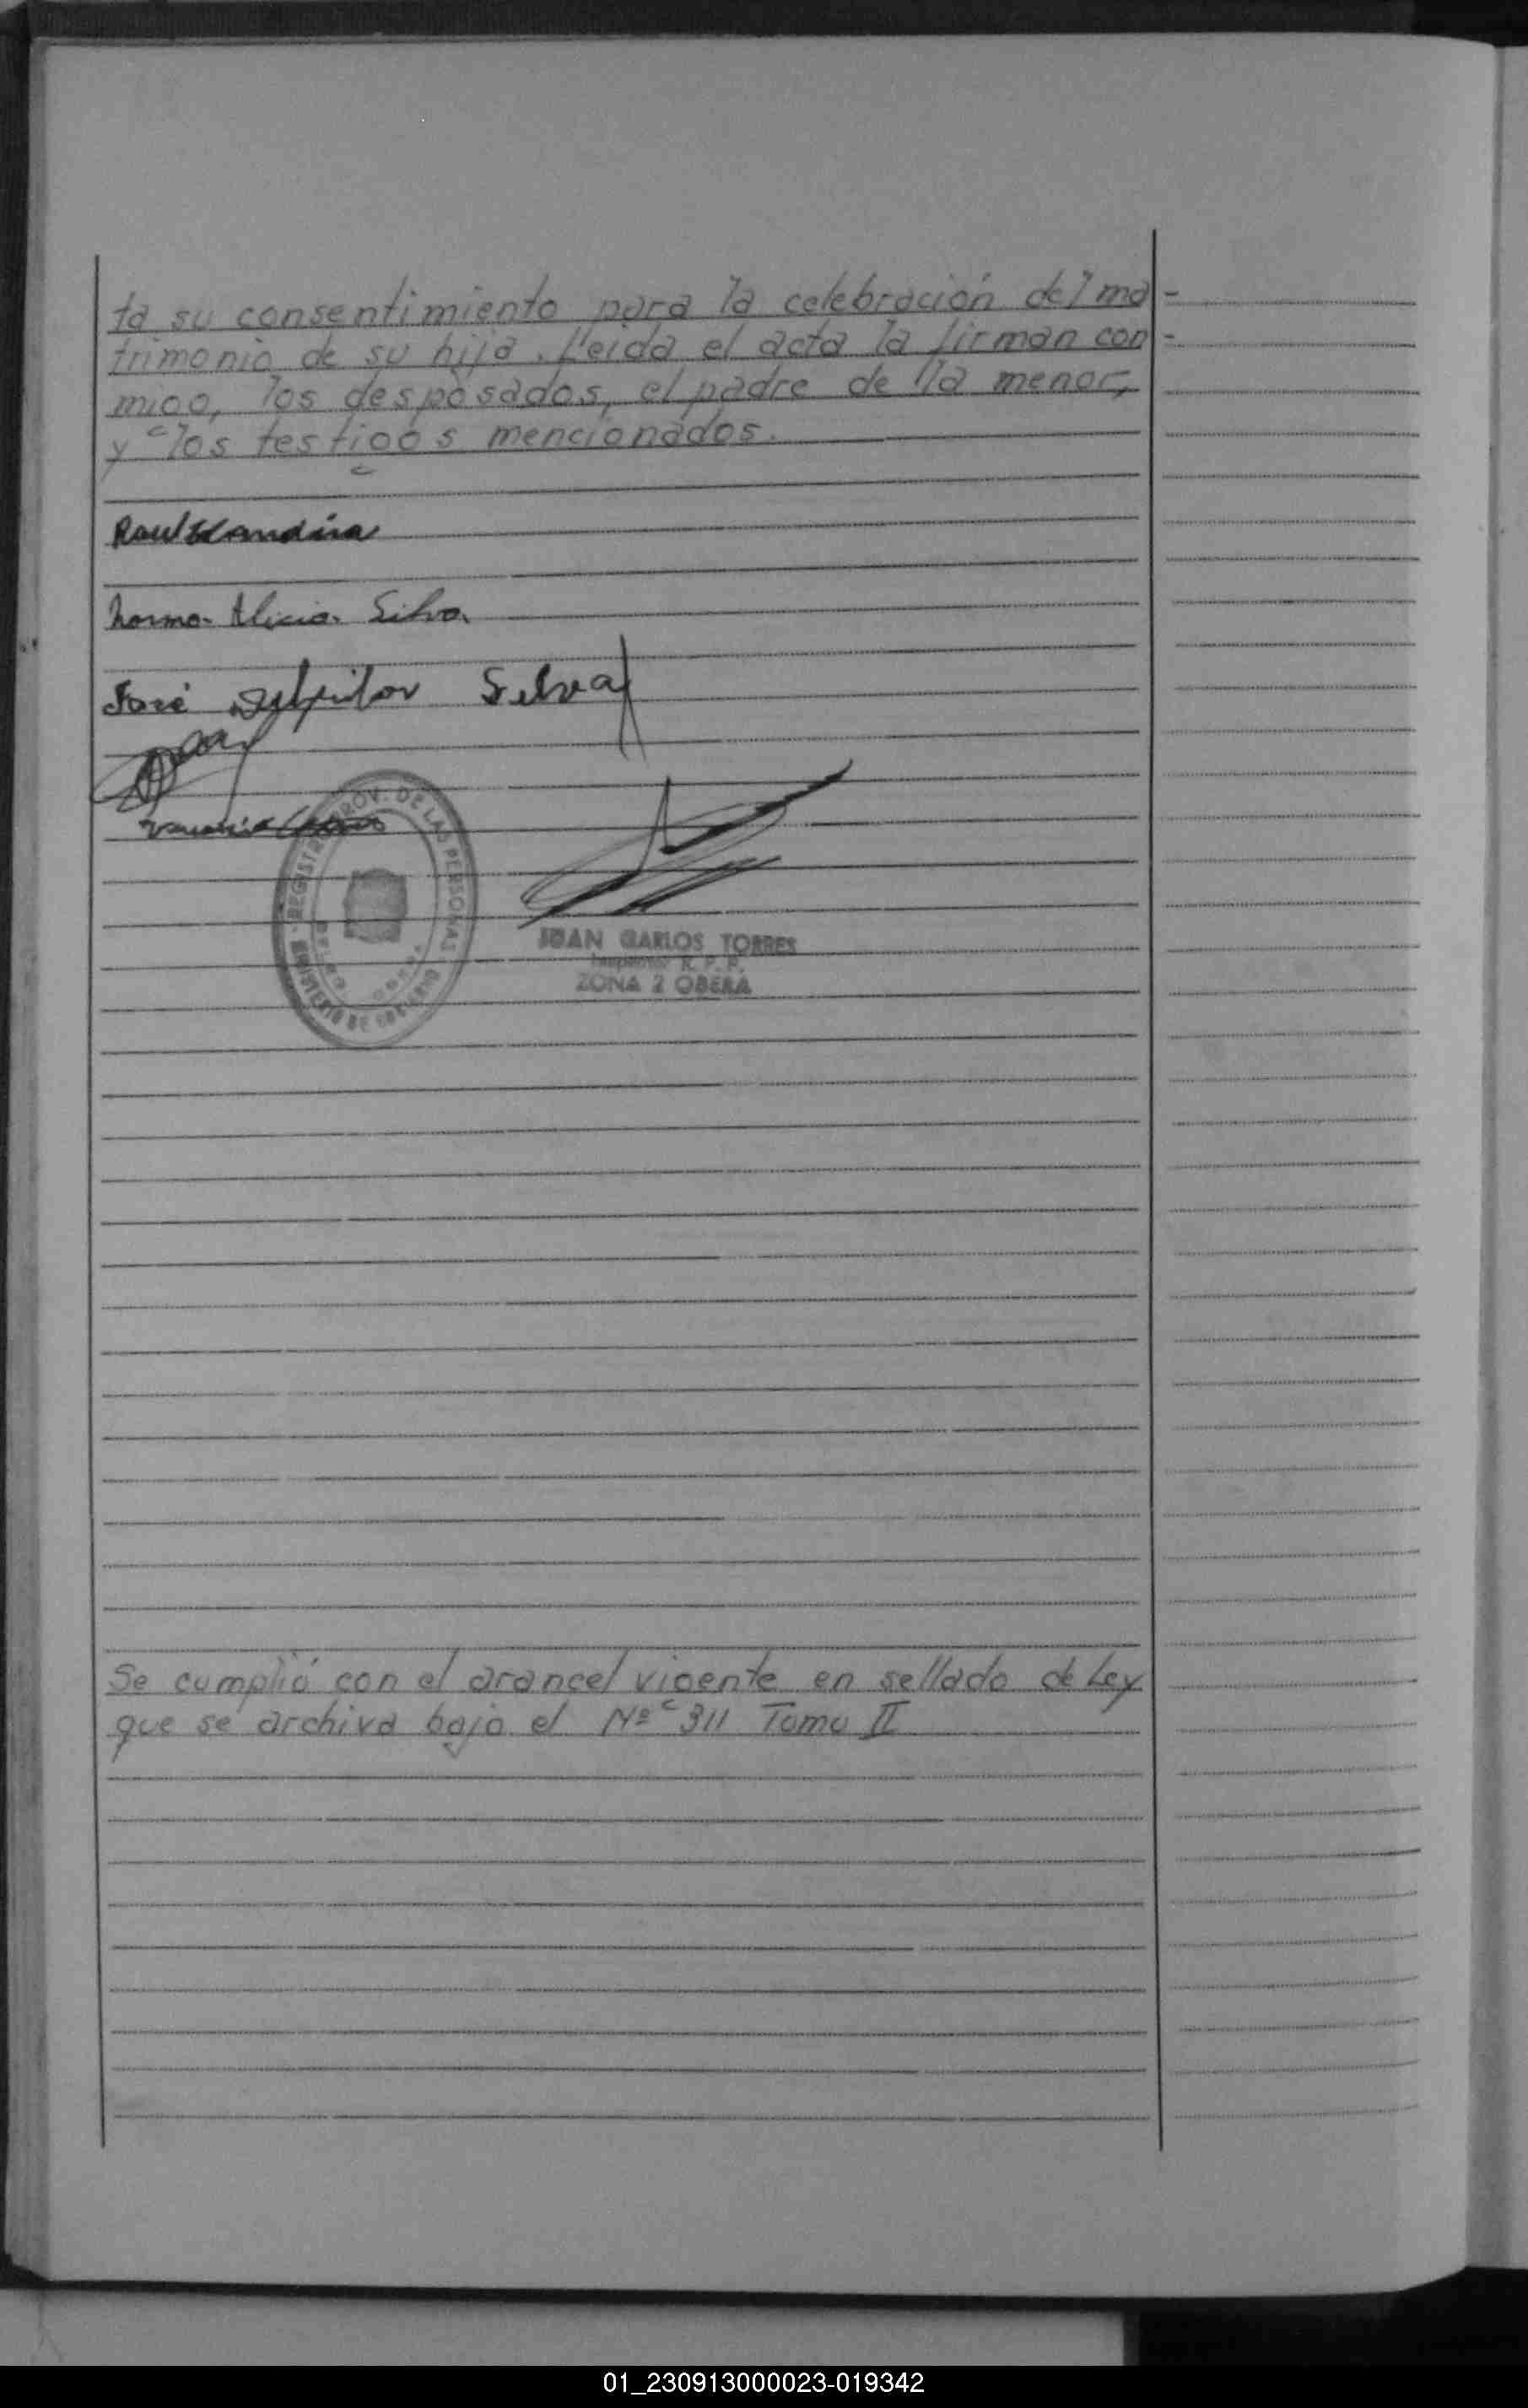 ta su consentimiento para la celebración del ma-
trimonio de su hija. Leida el acta la firman con-
migo, los desposados, el padre de la menor,
y los testigos mencionados.
Norma Alicia Silva
José Silva
REGISTRO PROV. DE LAS PERSONAS
MINISTERIO DE GOBIERNO
JUAN CARLOS TORRES
Inspector R. P. P.
ZONA 2 OBERA
Se cumplió con el arancel vigente en sellado de Ley
que se archiva bajo el Nº 311 Tomo II
01_230913000023-019342